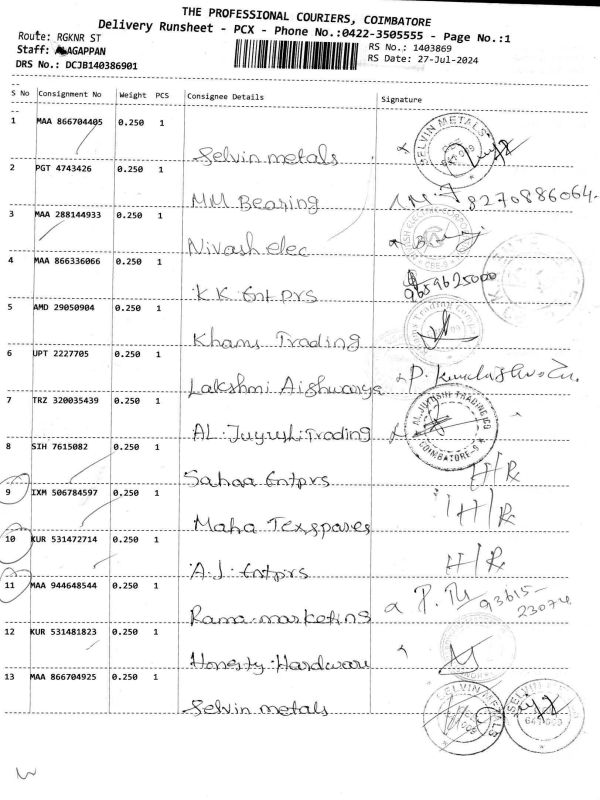 THE PROFESSIONAL COURIERS, COIMBATORE
Delivery Runsheet - PCX - Phone No.:0422-3505555 - Page No.:1
Route: RGKNR ST
RS No.: 1403869
Staff: ALAGAPPAN
RS Date: 27-Jul-2024
DRS No.: DCJB140386901
S No Consignment No Weight PCS Consignee Details Signature
1 MAA 866704405 0.250 1
Selvin metals SELVIN METALS
2 PGT 4743426 0.250 1
MM Bearing 8270886064
3 MAA 288144933 0.250 1
Nivash elec
4 MAA 866336066 0.250 1
K K Entprs 9659625000
5 AMD 29050904 0.250 1
Khams Trading
6 UPT 2227705 0.250 1
Lakshmi Aishwarya
7 TRZ 320035439 0.250 1
AL. Juyushi Trading AL.JUYUSHI TRADING CO COIMBATORE-9
8 SIH 7615082 0.250 1
Sahaa Entprs H/R
9 IXM 506784597 0.250 1
Maha Texspares H/R
10 KUR 531472714 0.250 1
A.J. Entprs H/R
11 MAA 944648544 0.250 1
Rama marketing 93615-23074
12 KUR 531481823 0.250 1
Honesty Hardware
13 MAA 866704925 0.250 1
Selvin metals SELVIN METALS SELVIN METALS